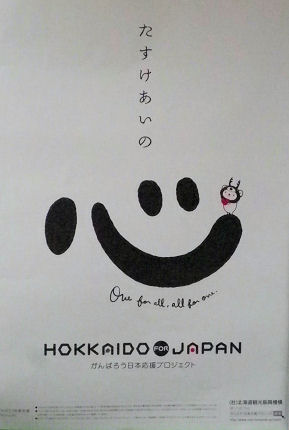 たすけあいの
心
One for all, all for one.
HOKKAIDO FOR JAPAN
がんばろう日本応援プロジェクト
(社)北海道観光振興機構